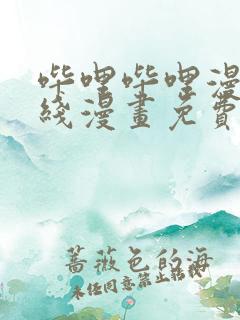 哔哩哔哩漫
线漫畫免費
蔷薇色的海
未经同意禁止转载